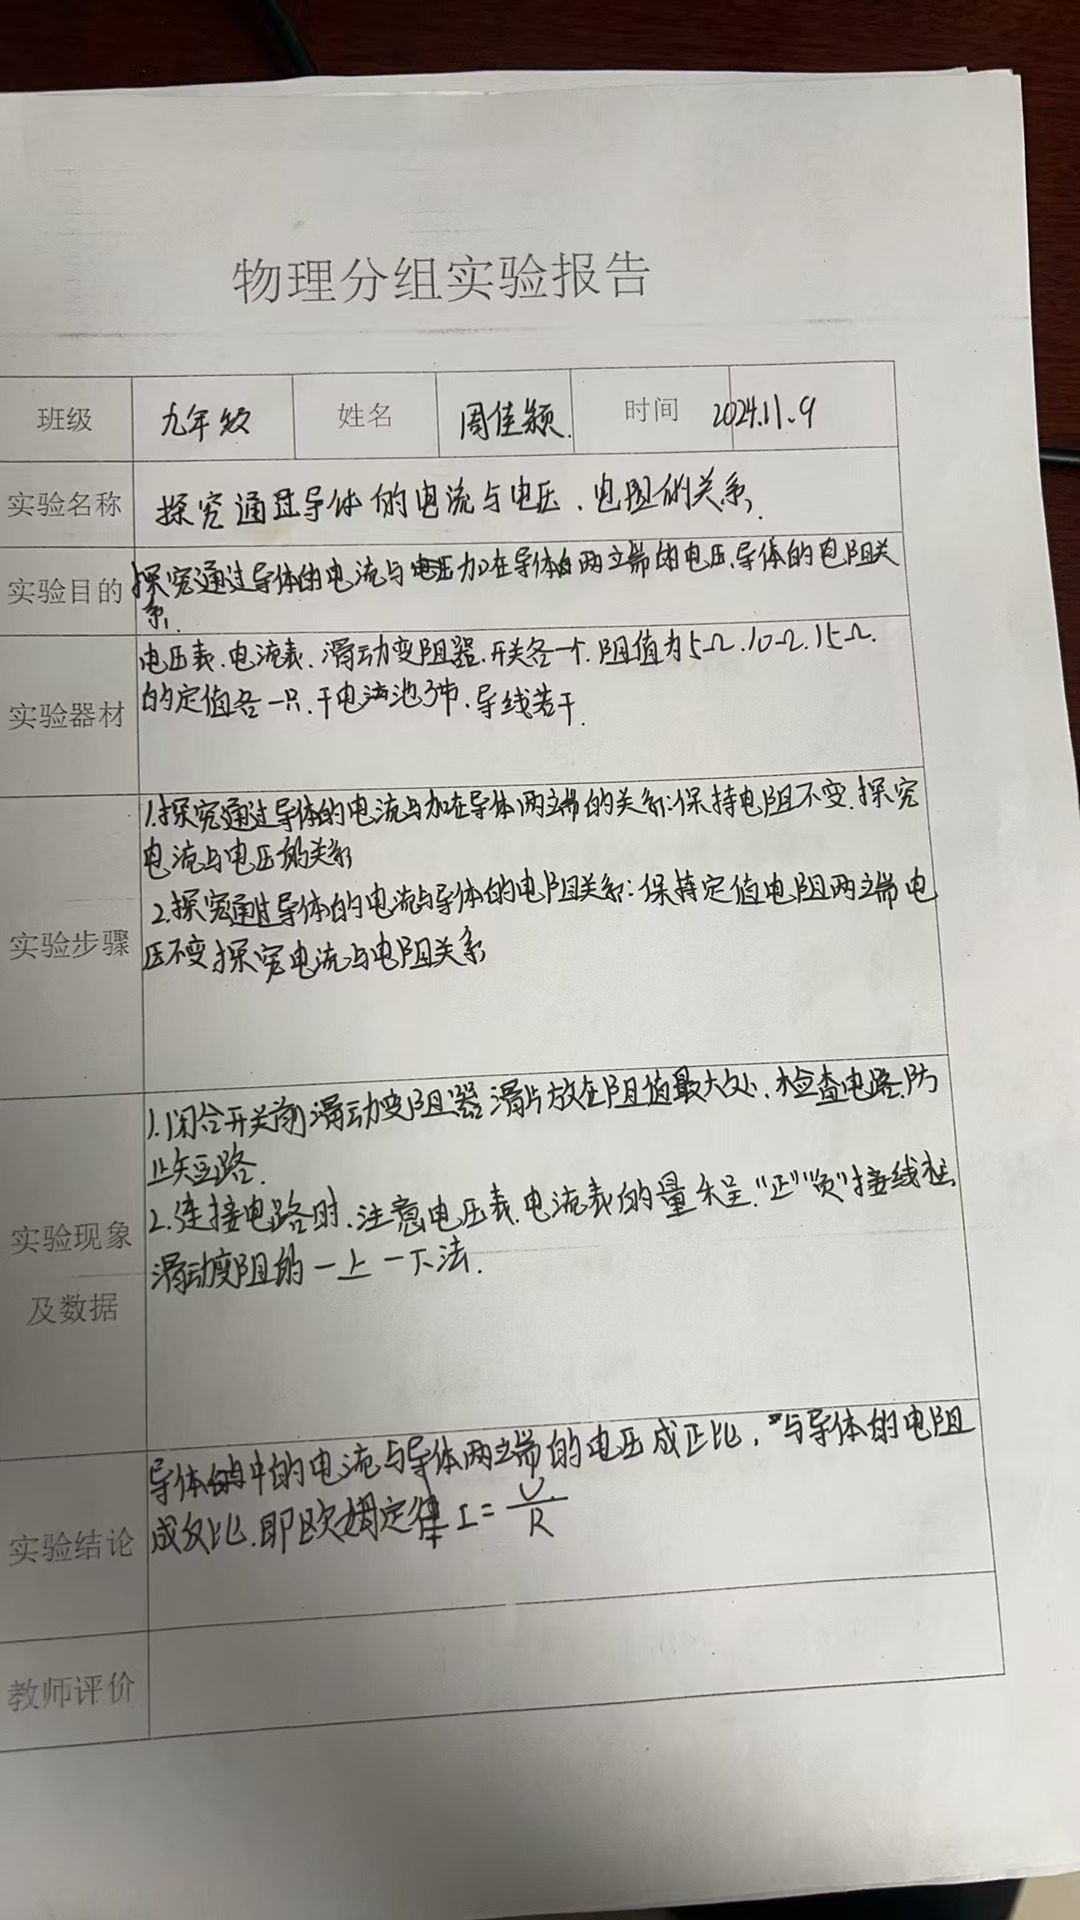 物理分组实验报告
班级 九年级 姓名 周佳颖 时间 2024.11.9
实验名称 探究通过导体的电流与电压、电阻的关系.
实验目的 探究通过导体的电流与加在导体两立端的电压、导体的电阻关
系.
实验器材 电压表、电流表、滑动变阻器、开关各一个、阻值为5Ω.10Ω.15Ω.
的定值各一只、干电池3节、导线若干.
实验步骤 1.探究通过导体的电流与加在导体两端的关系:保持电阻不变.探究
电流与电压的关系
2.探究通过导体的电流与导体的电阻关系:保持定值电阻两立端电
压不变探究电流与电阻关系
实验现象及数据 1.闭合开关前滑动变阻器滑片放在阻值最大处、检查电路.防
止短路.
2.连接电路时、注意电压表.电流表的量程"正""负"接线柱
滑动变阻的一上一下法.
实验结论 导体中的电流与导体两立端的电压成正比,与导体的电阻
成反比.即欧姆定律 I=U/R
教师评价